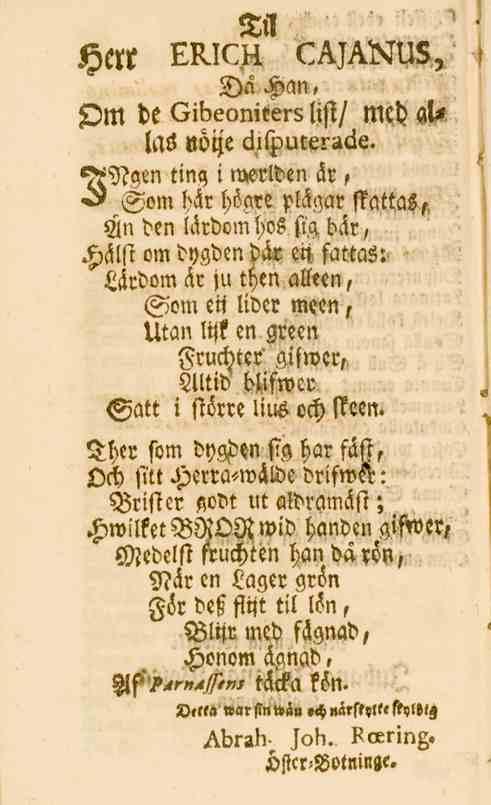 Til
Herr ERICH CAJANUS,
Då Han,
Om de Gibeoniters list/ med al-
las nöije disputerade.
INgen ting i werlden är,
Som här högre plägar skattas,
Än den lärdom hos sig bär,
Hälst om dygden där eij fattas:
Lärdom är ju then alleen,
Som eij lider meen,
Utan lijk en green
Fruchter gifwer,
Altid blifwer
Satt i större lius och skeen.
Ther som dygden sig har fäst,
Och sitt Herra-wälde drifwer:
Brister godt ut aldramäst;
Hwilket BROR wid handen gifwer,
Medelst fruchten han då rön,
När en Lager grön
För deß flijt til lön,
Blijr med fägnad,
Honom ägnad,
Af Parnassens täcka kön.
Detta war sin wän och närskylte skyldig
Abrah. Joh. Rœring.
Öster-Botninge.